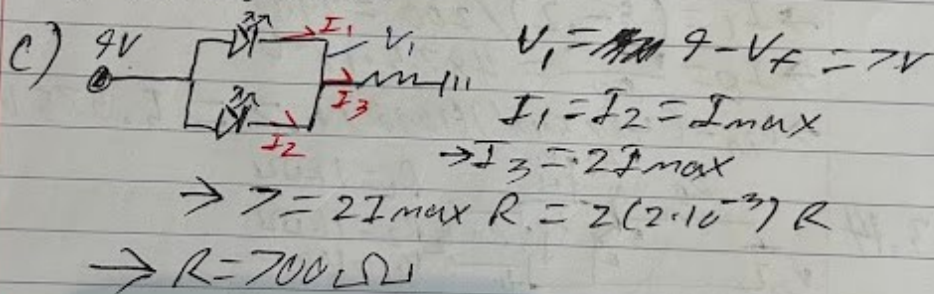 C) 9V I₁ V₁ V₁ = 9 - V_f = 7V
I₃ I₁ = I₂ = Imax
I₂ → I₃ = 2Imax
→ 7 = 2Imax R = 2(2·10⁻³) R
→ R = 700Ω